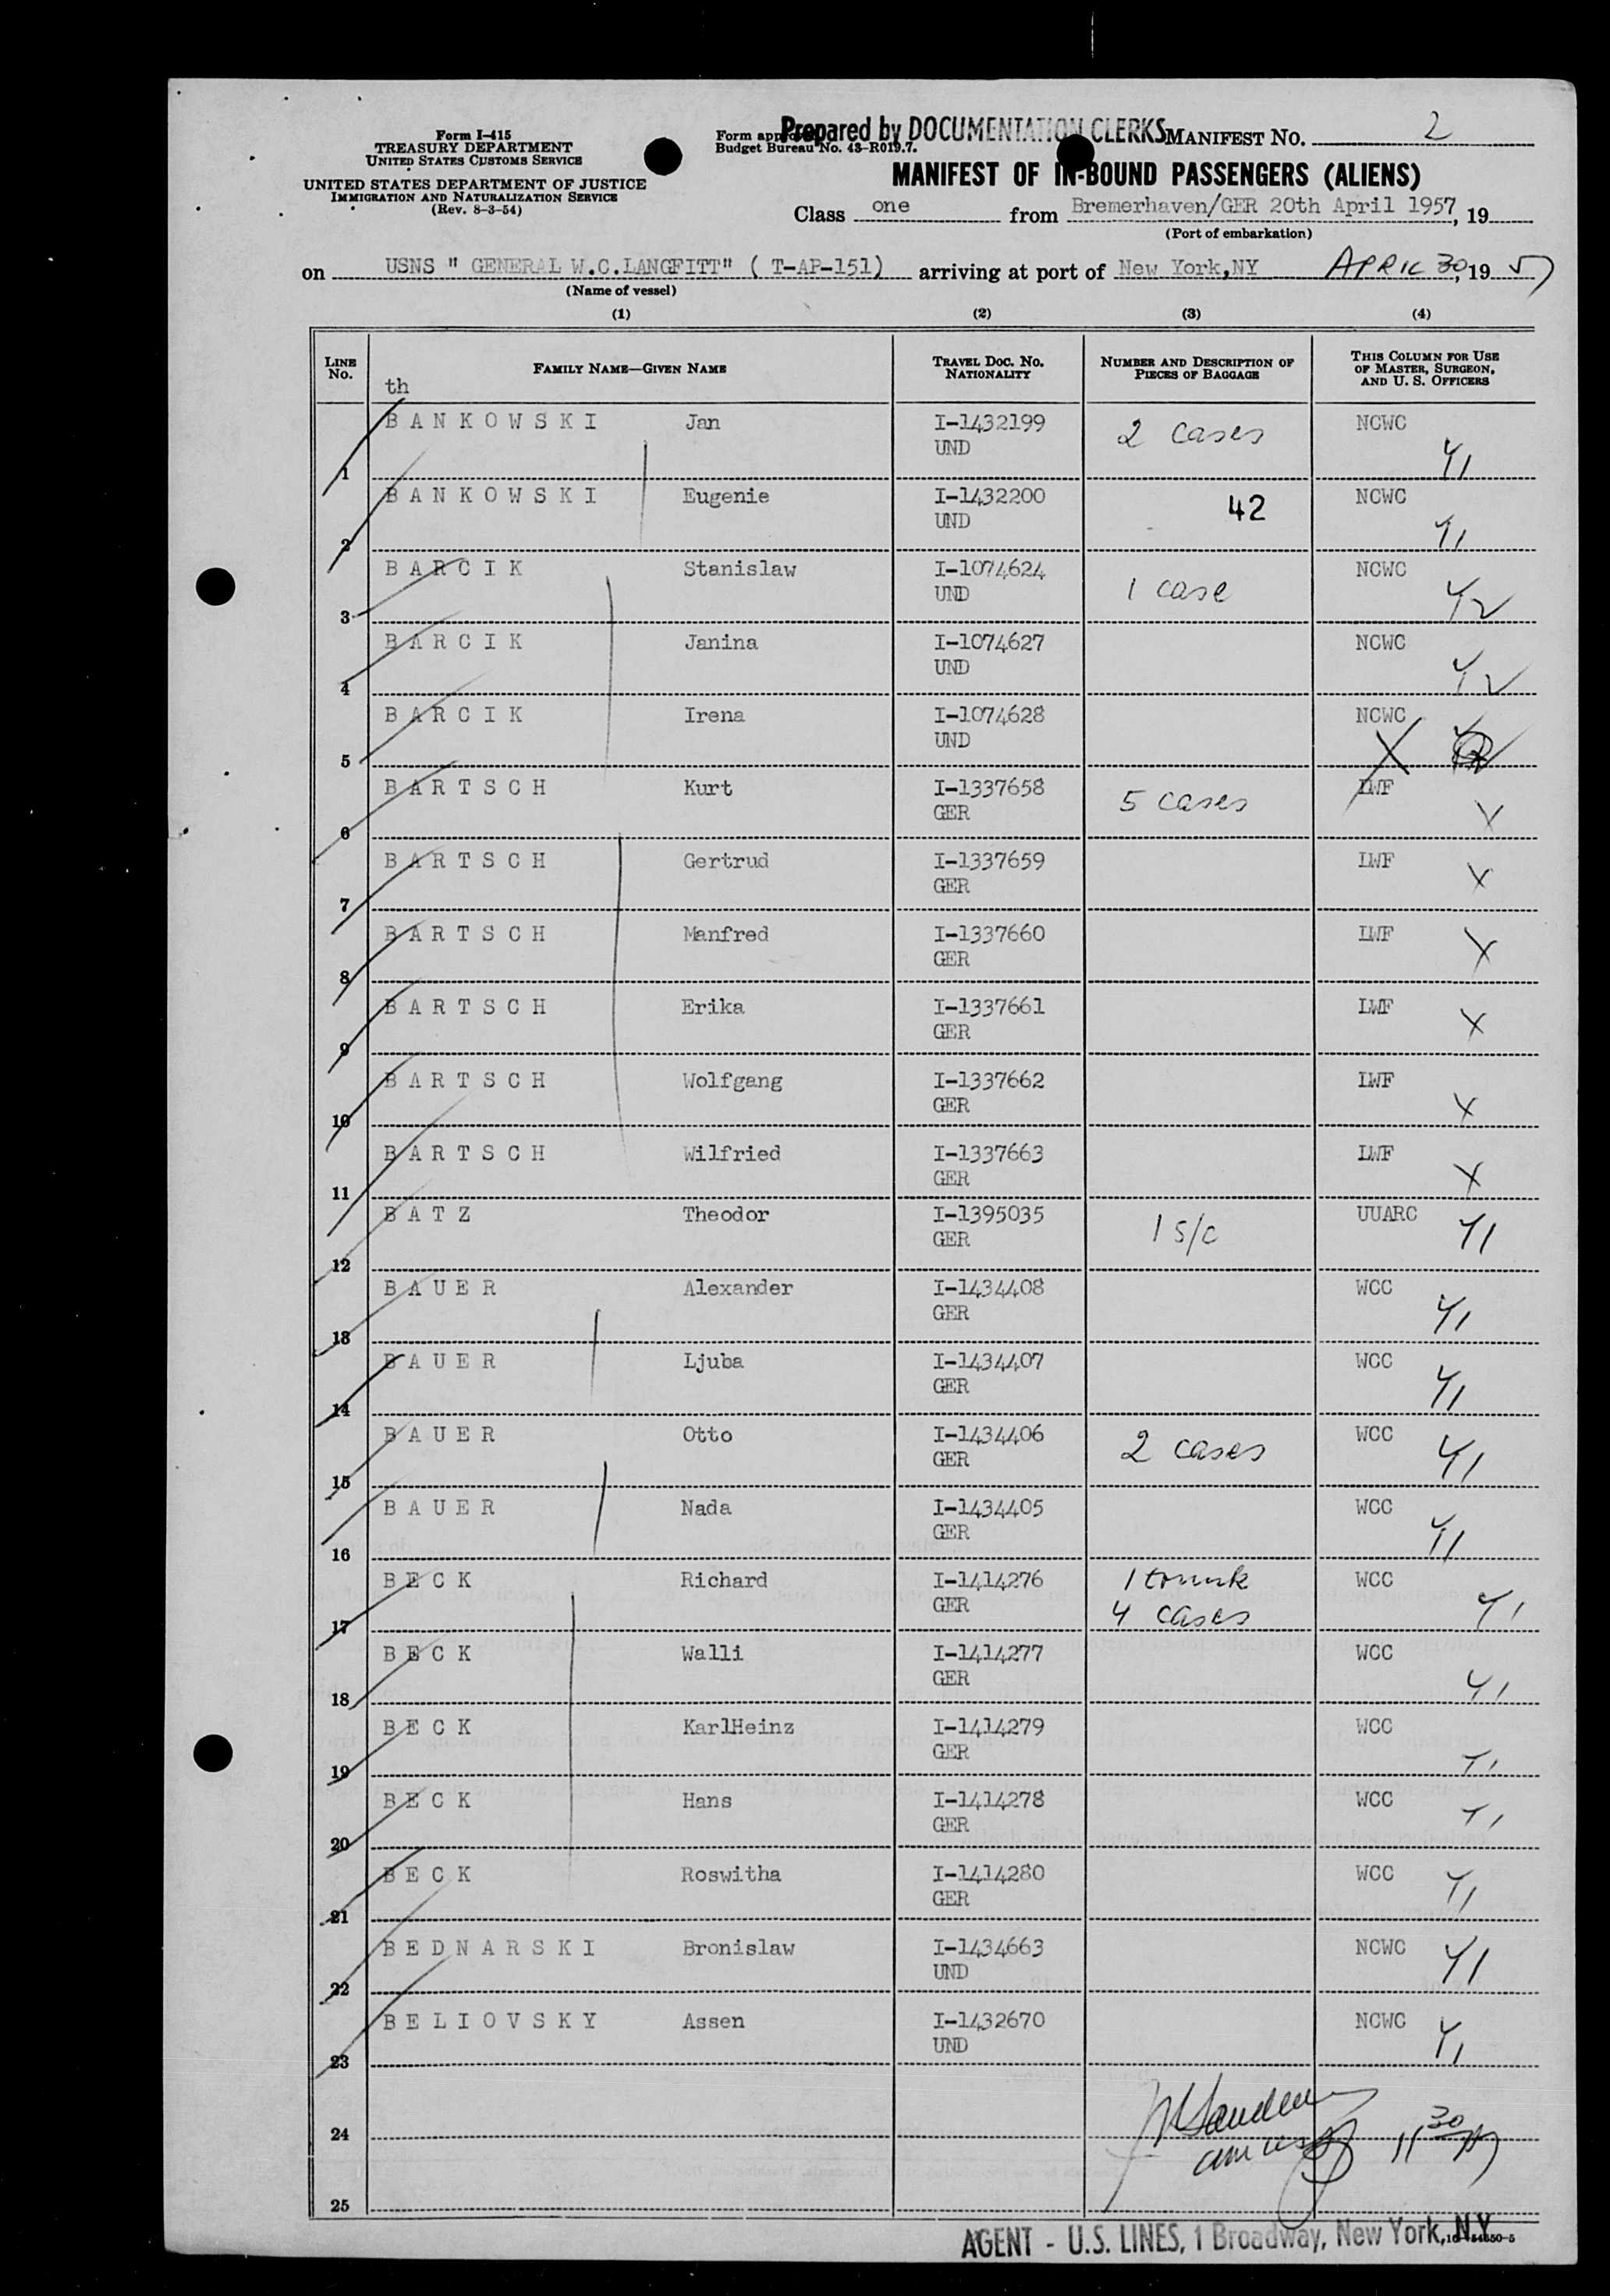 Form I-415
TREASURY DEPARTMENT
UNITED STATES CUSTOMS SERVICE
UNITED STATES DEPARTMENT OF JUSTICE
IMMIGRATION AND NATURALIZATION SERVICE
(Rev. 8-3-54)
Form approved
Budget Bureau No. 43-R019.7.
Prepared by DOCUMENTATION CLERKS
MANIFEST NO. 2
MANIFEST OF IN-BOUND PASSENGERS (ALIENS)
Class one from Bremerhaven/GER 20th April 1957, 19
(Port of embarkation)
on USNS " GENERAL W.C.LANGFITT" ( T-AP-151) arriving at port of New York,NY APRIL 30, 19 57
(Name of vessel)
(1) (2) (3) (4)
LINE NO. FAMILY NAME—GIVEN NAME TRAVEL DOC. NO. NATIONALITY NUMBER AND DESCRIPTION OF PIECES OF BAGGAGE THIS COLUMN FOR USE OF MASTER, SURGEON, AND U. S. OFFICERS
th
1 BANKOWSKI Jan I-1432199 UND 2 cases NCWC Y1
2 BANKOWSKI Eugenie I-1432200 UND 42 NCWC Y1
3 BARCIK Stanislaw I-1074624 UND 1 case NCWC Y2
4 BARCIK Janina I-1074627 UND NCWC Y2
5 BARCIK Irena I-1074628 UND NCWC X
6 BARTSCH Kurt I-1337658 GER 5 cases LWF X
7 BARTSCH Gertrud I-1337659 GER LWF X
8 BARTSCH Manfred I-1337660 GER LWF X
9 BARTSCH Erika I-1337661 GER LWF X
10 BARTSCH Wolfgang I-1337662 GER LWF X
11 BARTSCH Wilfried I-1337663 GER LWF X
12 BATZ Theodor I-1395035 GER 1 s/c UUARC Y1
13 BAUER Alexander I-1434408 GER WCC Y1
14 BAUER Ljuba I-1434407 GER WCC Y1
15 BAUER Otto I-1434406 GER 2 cases WCC Y1
16 BAUER Nada I-1434405 GER WCC Y1
17 BECK Richard I-1414276 GER 1 trunk 4 cases WCC Y1
18 BECK Walli I-1414277 GER WCC Y1
19 BECK KarlHeinz I-1414279 GER WCC Y1
20 BECK Hans I-1414278 GER WCC Y1
21 BECK Roswitha I-1414280 GER WCC Y1
22 BEDNARSKI Bronislaw I-1434663 UND NCWC Y1
23 BELIOVSKY Assen I-1432670 UND NCWC Y1
24 11 30
25
AGENT - U.S. LINES, 1 Broadway, New York, N.Y.